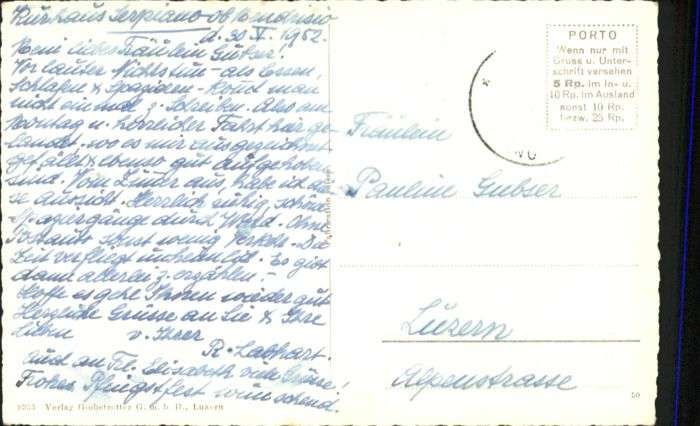 Kurhaus Serpiano ob Mendrisio
d. 30 V. 1952.
Mein liebes Fräulein Gubser!
Vor lauter Nichtstun - als Essen,
Schlafen & Spazieren - kommt man
nicht einmal z. Schreiben. Also am
Sonntag n. herrlicher Fahrt hier ge-
landet, wo es mir ausgezeichnet
gefällt & ebenso gut aufgehoben
sind. Vom Zimmer aus, habe ich die-
se Aussicht. Herrlich ruhig, schöne
Spaziergänge durch Wald. Ohne
Postauto sonst wenig Verkehr. Die
Zeit verfliegt unheimlich. Es gibt
dann allerlei z. erzählen. -
Hoffe es gehe Ihnen wieder gut
Herzliche Grüsse an Sie & Ihre
Lieben v. Ihrer
R. Labhart.
Auch an Frl. Elisabeth viele Grüsse!
Frohes Pfingstfest wünschend.
1033 - Verlag Globetrotter G. m. b. H., Luzern
PORTO
Wenn nur mit
Gruss u. Unter-
schrift versehen
5 Rp. im In- u.
10 Rp. im Ausland
sonst 10 Rp.
bezw. 25 Rp.
Fräulein
Pauline Gubser
Luzern
Alpenstrasse
50